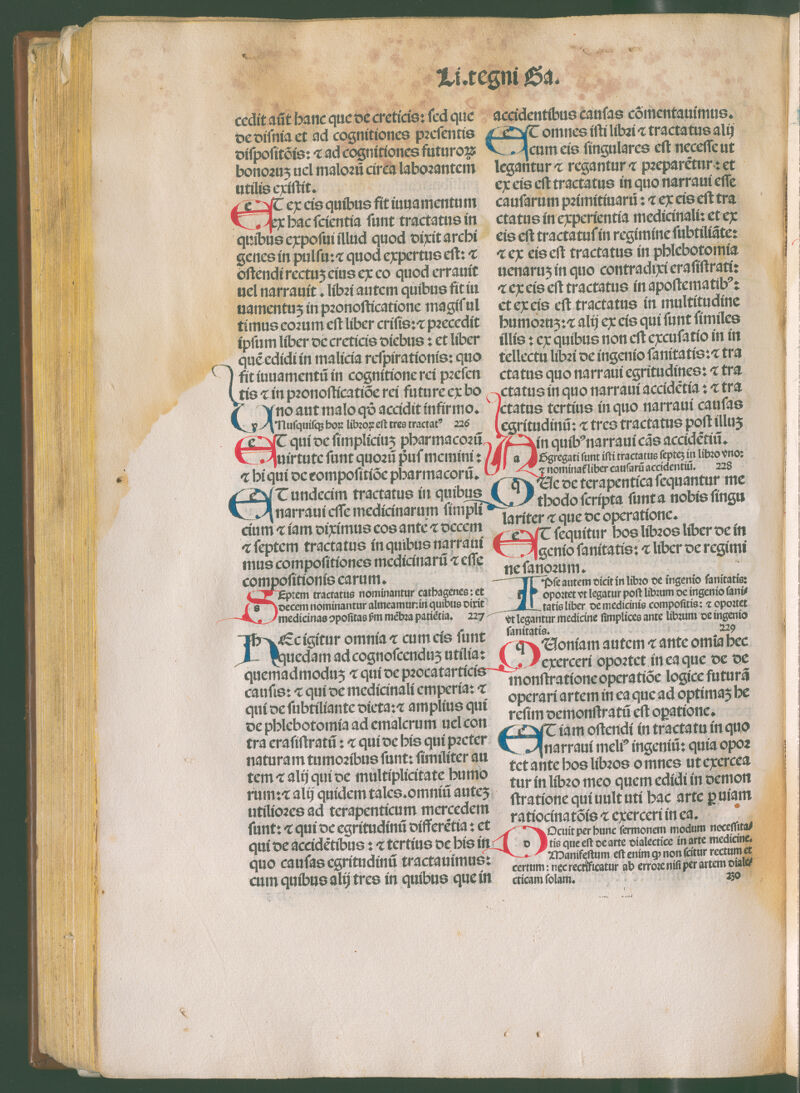 Li.tegni Ga.
cedit aūt hanc que de creticis: sed que
de disnia et ad cognitiones presentis
dispositōis: ⁊ ad cognitiones futuroꝝ
bonoruꝫ uel malorū circa laborantem
utilis existit.
eT ex eis quibus fit iuuamentum
ex hac scientia sunt tractatus in
quibus exposui illud quod dixit archi
genes in pulsu: ⁊ quod expertus est: ⁊
ostendi rectuꝫ eius ex eo quod errauit
uel narrauit. libri autem quibus fit iu
uamentuꝫ in pronosticatione magis ul
timus eorum est liber crisis: ⁊ precedit
ipsum liber de creticis diebus: et liber
quē edidi in malicia respirationis: quo
fit iuuamentū in cognitione rei presen
tis ⁊ in pronosticatiōe rei future ex bo
no aut malo qđ accidit infirmo.
Nusquisqꝫ hoꝝ libroꝝ est tres tractatꝰ 226
eT qui de simpliciuꝫ pharmacorū
uirtute sunt quorū p̄us memini:
⁊ hi qui de compositiōe pharmacorū.
eT undecim tractatus in quibus
narraui esse medicinarum simpli
cium ⁊ iam diximus eos ante ⁊ decem
⁊ septem tractatus in quibus narraui
mus compositiones medicinarū ⁊ esse
compositionis earum.
sEptem tractatus nominantur cathagenes: et
decem nominantur almeamur: in quibus dixit
medicinas ꝯpositas ſm mēbra patiētia. 227
hEc igitur omnia ⁊ cum eis sunt
quedam ad cognoscenduꝫ utilia:
quemadmoduꝫ ⁊ qui de procatarticis
causis: ⁊ qui de medicinali emperia: ⁊
qui de subtiliante dieta: ⁊ amplius qui
de phlebotomia ad emalcrum uel con
tra erasistratū: ⁊ qui de his qui preter
naturam tumoribus sunt: similiter au
tem ⁊ alij qui de multiplicitate humo
rum: ⁊ alij quidem tales. omniū auteꝫ
utiliores ad terapenticum mercedem
sunt: ⁊ qui de egritudinū differētia: et
qui de accidētibus: ⁊ tertius de his in
quo causas egritudinū tractauimus:
cum quibus alij tres in quibus que in
accidentibus causas cōmentauimus.
eT omnes isti libri ⁊ tractatus alij
cum eis singulares est necesse ut
legantur ⁊ regantur ⁊ preparētur: et
ex eis est tractatus in quo narraui esse
causarum primitiuarū: ⁊ ex eis est tra
ctatus in experientia medicinali: et ex
eis est tractatus in regimine subtiliāte:
⁊ ex eis est tractatus in phlebotomia
uenaruꝫ in quo contradixi erasistrati:
⁊ ex eis est tractatus in apostematibꝰ:
et ex eis est tractatus in multitudine
humoruꝫ: ⁊ alij ex eis qui sunt similes
illis: ex quibus non est excusatio in in
tellectu libri de ingenio sanitatis: ⁊ tra
ctatus quo narraui egritudines: ⁊ tra
ctatus in quo narraui accidētia: ⁊ tra
ctatus tertius in quo narraui causas
egritudinū: ⁊ tres tractatus post illuꝫ
in quibꝰ narraui cās accidētiū.
aGgregati sunt isti tractatus septeꝫ in libro vno:
⁊ nominat̄ liber causarū accidentiū. 228
qUe de terapentica sequantur me
thodo scripta sunt a nobis singu
lariter ⁊ que de operatione.
eT sequitur hos libros liber de in
genio sanitatis: ⁊ liber de regimi
ne sanorum.
iPse autem dicit in libro de ingenio sanitatis:
oportet vt legatur post librum de ingenio sani⸗
tatis liber de medicinis compositis: ⁊ oportet
vt legantur medicine simplices ante librum de ingenio
sanitatis. 229
qUoniam autem ⁊ ante omīa hec
exerceri oportet in ea que de de
monstratione operatiōe logice futurā
operari artem in ea que ad optimaꝫ he
resim demonstratū est oꝑatione.
eT iam ostendi in tractatu in quo
narraui meliꝰ ingeniū: quia opor
tet ante hos libros omnes ut exercea
tur in libro meo quem edidi in demon
stratione qui uult uti hac arte ꝑ uiam
ratiocinatōis ⁊ exerceri in ea.
dOcuit per hunc sermonem modum necessita⸗
tis que est de arte dialectice in arte medicine.
Manifestum est enim ꝙ non scitur rectum et
certum: nec rectificatur ab errore nisi per artem diale⸗
cticam solam. 230